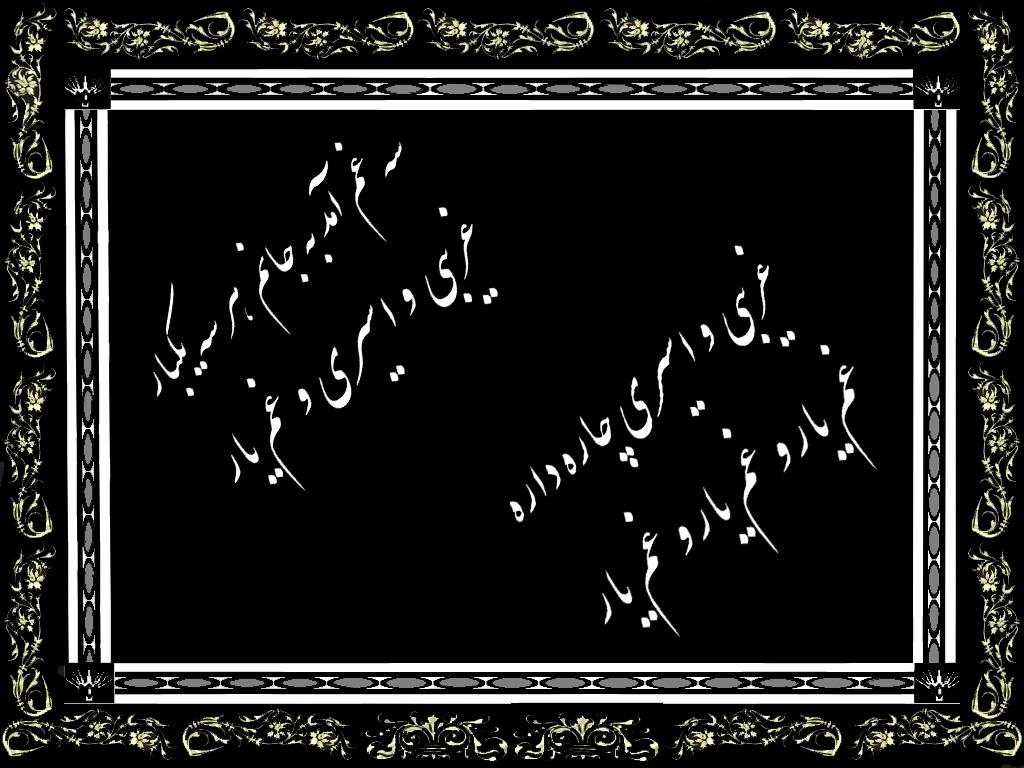 سه غم آمد به جانم هر سه یکبار
غریبی و اسیری و غم یار
غریبی و اسیری چاره داره
غم یار و غم یار و غم یار